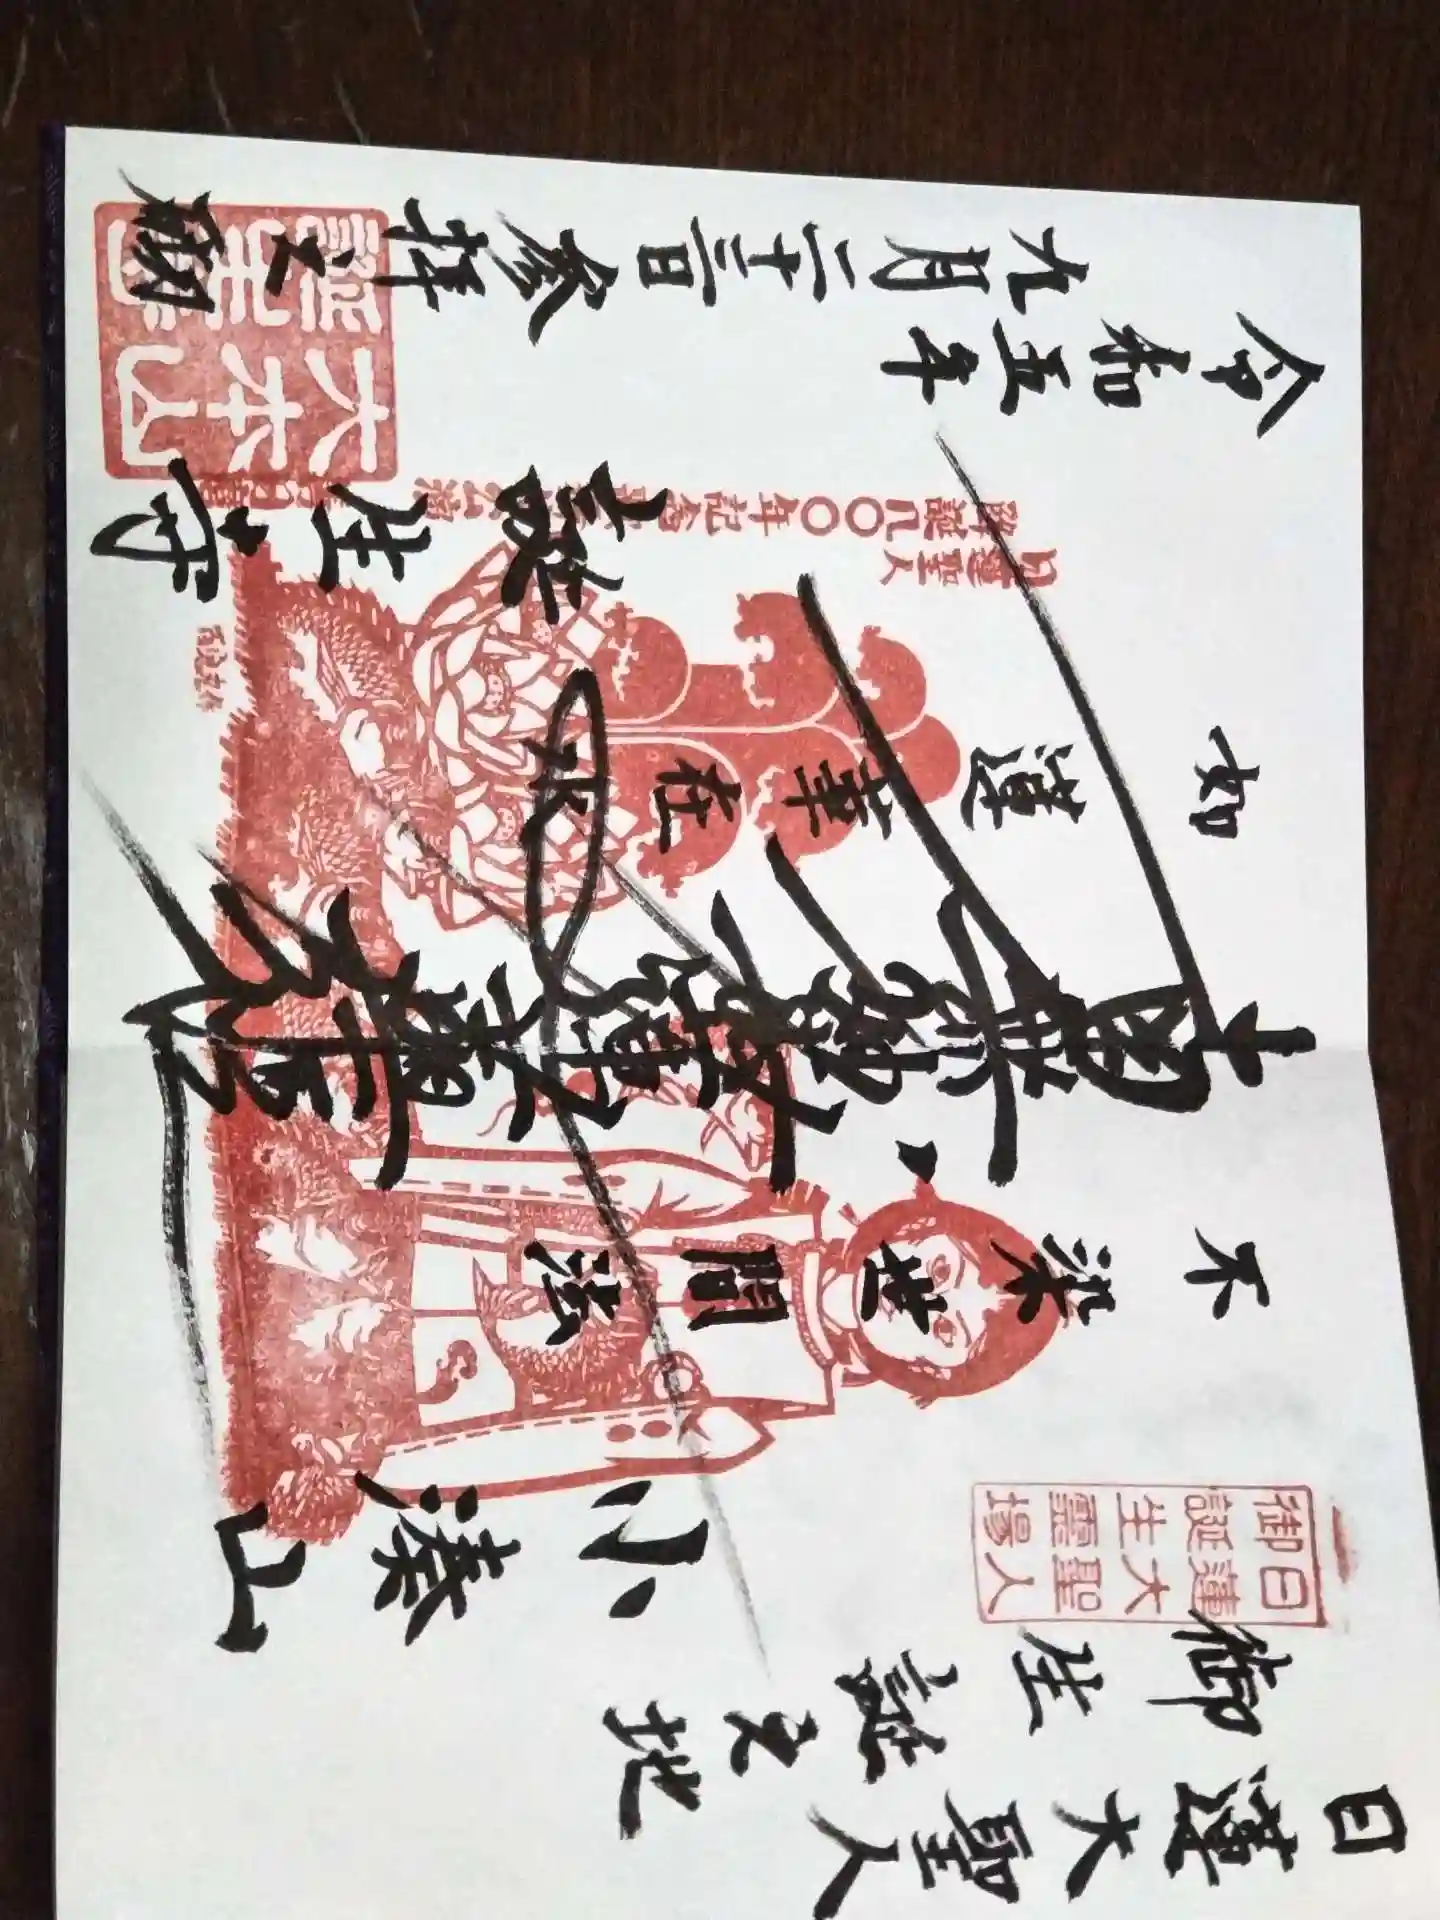 日蓮大聖人
御生誕之地
日蓮大聖人
御誕生霊場
小湊山
不染世間法
南無妙法蓮華経
如蓮華在水
誕生寺
日蓮聖人
降誕八〇〇年記念
大本山
誕生寺
令和五年
九月二十三日参拝